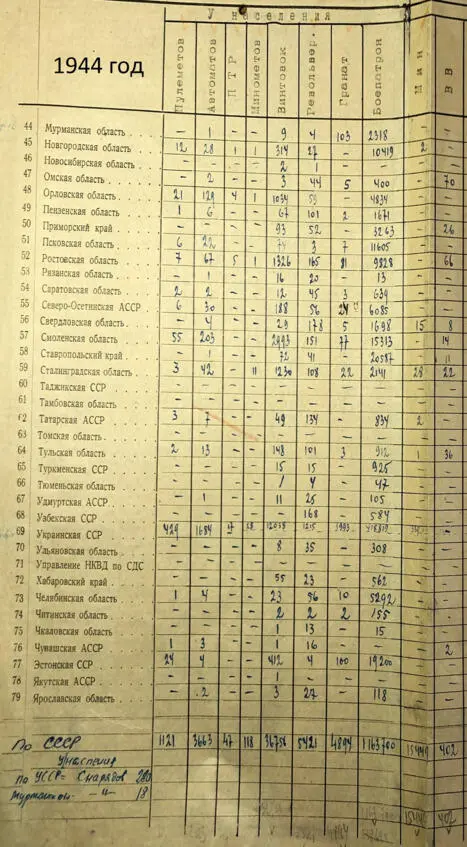 У населения
1944 год
Пулеметов Автоматов ПТР Минометов Винтовок Револьвер. Гранат Боепатрон Мин ВВ
44 Мурманская область . . . — 1 — — 9 4 103 2318
45 Новгородская область . . . 12 28 1 1 314 27 — 10419 2
46 Новосибирская область . . — — — — 2 1 — —
47 Омская область . . . . — 2 — — 3 44 5 400 — 70
48 Орловская область . . . . 21 129 4 1 1034 — 4834
49 Пензенская область . . . 1 6 — — 67 101 2 1671
50 Приморский край . . . . — — — — 93 52 — 3263 — 26
51 Псковская область . . . 6 22 — — 3 7 11605
52 Ростовская область . . . 7 67 5 1 1326 165 21 9828 — 66
53 Рязанская область . . . . — 1 — — 16 20 — 13
54 Саратовская область . . . 2 2 — — 12 45 3 639
55 Северо-Осетинская АССР 6 30 — — 188 56 6085
56 Свердловская область . . . — 4 — — 29 178 5 1698 15 8
57 Смоленская область . . . 55 203 — — 2993 151 77 15313 — 14
58 Ставропольский край . . . — 1 — — 72 41 — 20587 — 11
59 Сталинградская область . 3 42 — 11 1230 108 22 2141 28 22
60 Таджикская ССР . . . . — — — — — — — —
61 Тамбовская область . . . — — — — — — — —
62 Татарская АССР . . . . 3 7 — — 49 134 — 834 2
63 Томская область . . . . — — — — — — — —
64 Тульская область . . . . 2 13 — — 148 101 3 912 1 36
65 Туркменская ССР . . . — — — — 15 15 — 925
66 Тюменьская область . . . — — — — 1 4 — 47
67 Удмуртская АССР . . . — 1 — — 11 25 — 105
68 Узбекская ССР . . . . — — — — — 168 — 584
69 Украинская ССР . . . . 429 1684 12038 1215
70 Ульяновская область . . . — — — — 8 35 — 308
71 Управление НКВД по СДС — — — — — — — —
72 Хабаровский край . . . . — — — — 55 23 — 562
73 Челябинская область . . . 1 4 — — 23 56 10 5292
74 Читинская область . . . . — — — — 2 2 2 155
75 Чкаловская область . . . — — — — 1 13 — 15
76 Чувашская АССР . . . . 1 3 — — 1 16 — — — 2
77 Эстонская ССР . . . . 24 4 — — 412 4 100 19200
78 Якутская АССР . . . . — — — — 1 — — —
79 Ярославская область . . . — 2 — — 3 27 — 118
По СССР 1121 3663 47 118 36756 5421 4894 1163700 15449 402
У населения
по УССР = Снарядов 280
Мурманской — " — 18
15449 402